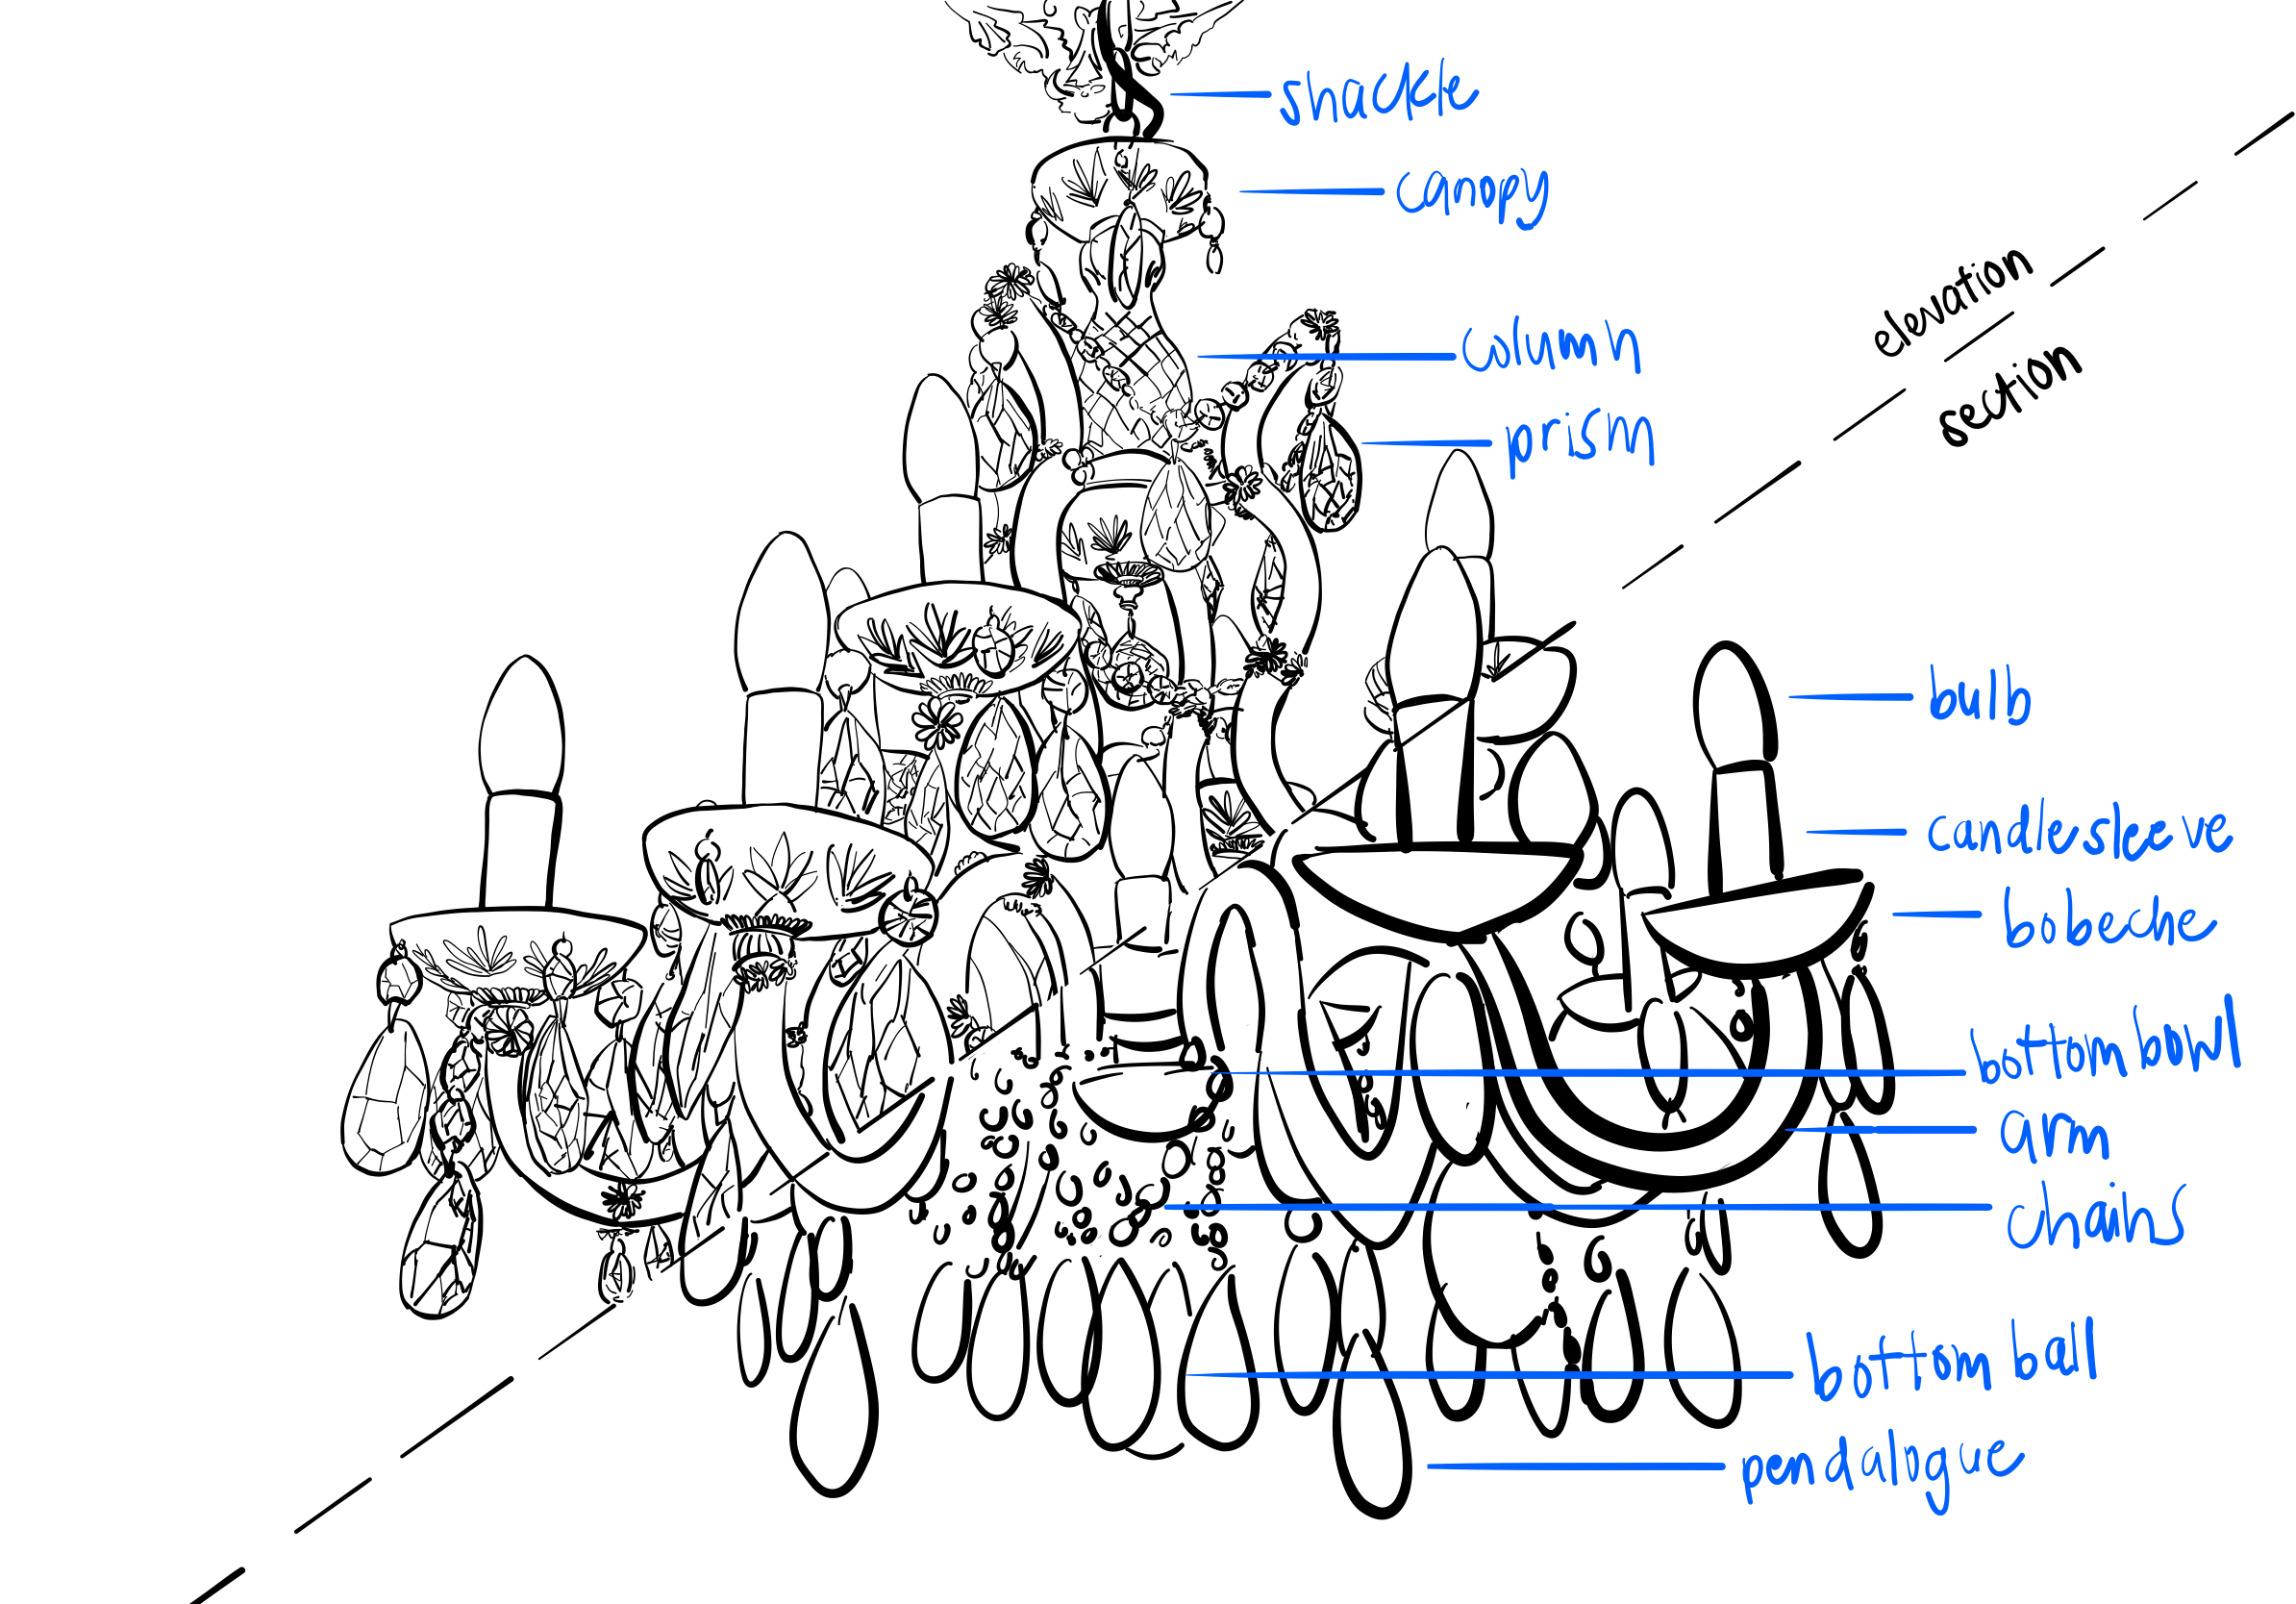 shackle
canopy
column
elevation
section
prism
bulb
candlesleeve
bobeche
bottom bowl
arm
chains
bottom ball
pendalogue